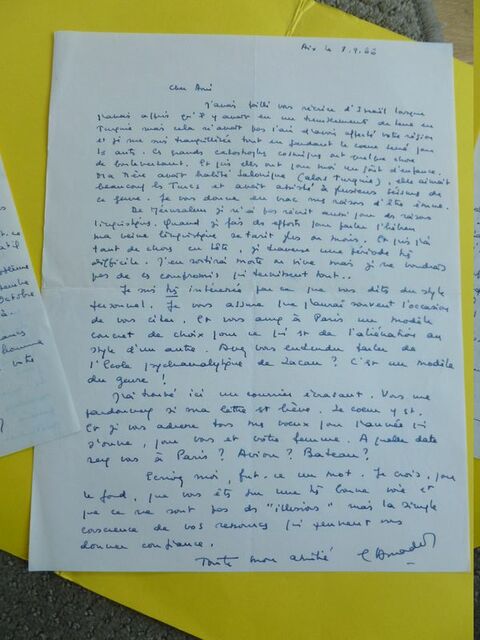 Aix le 8.9.66
Cher Ami
J'avais failli vous écrire d'Israël lorsque
j'avais appris qu'il y avait eu un tremblement de terre en
Turquie mais cela n'avait pas l'air d'avoir affecté votre région
et je me suis tranquillisée tout en gardant le cœur serré pour
les autres. Ces grandes catastrophes cosmiques ont quelque chose
de bouleversant. Et puis elles ont pour moi un goût d'enfance.
Ma mère avait habité Salonique (alors Turquie), elle aimait
beaucoup les Turcs et avait assisté à plusieurs séismes de
ce genre. Je vous donne en vrac mes raisons d'être émue.
De Jérusalem je n'ai pas écrit aussi pour des raisons
linguistiques. Quand je fais des efforts pour parler l'hébreu
ma veine linguistique se tarit plus ou moins. Et puis j'ai
tant de choses en tête, je traverse une période très
difficile. J'en sortirai morte ou vive mais je ne voudrais
pas de ces compromis qui ternissent tout..
Je suis très intéressée par ce que vous dites du style
personnel. Je vous assure que j'aurai souvent l'occasion
de vous citer. Et vous aurez à Paris un modèle
concret de choix pour ce qui est de l'aliénation au
style d'un autre. Avez vous entendu parler de
l'Ecole psychanalytique de Lacan? C'est un modèle
du genre!
J'ai trouvé ici un courrier écrasant. Vous me
pardonnerez si ma lettre est brève. Le cœur y est.
Et je vous adresse tous mes vœux pour l'année qui
s'ouvre, pour vous et votre femme. A quelle date
serez vous à Paris? Avion? Bateau?
Ecrivez moi, fut-ce un mot. Je crois, pour
le fond, que vous êtes sur une très bonne voie et
que ce ne sont pas des "illusions" mais la simple
conscience de vos ressources qui peuvent vous
donner confiance.
Toute mon amitié